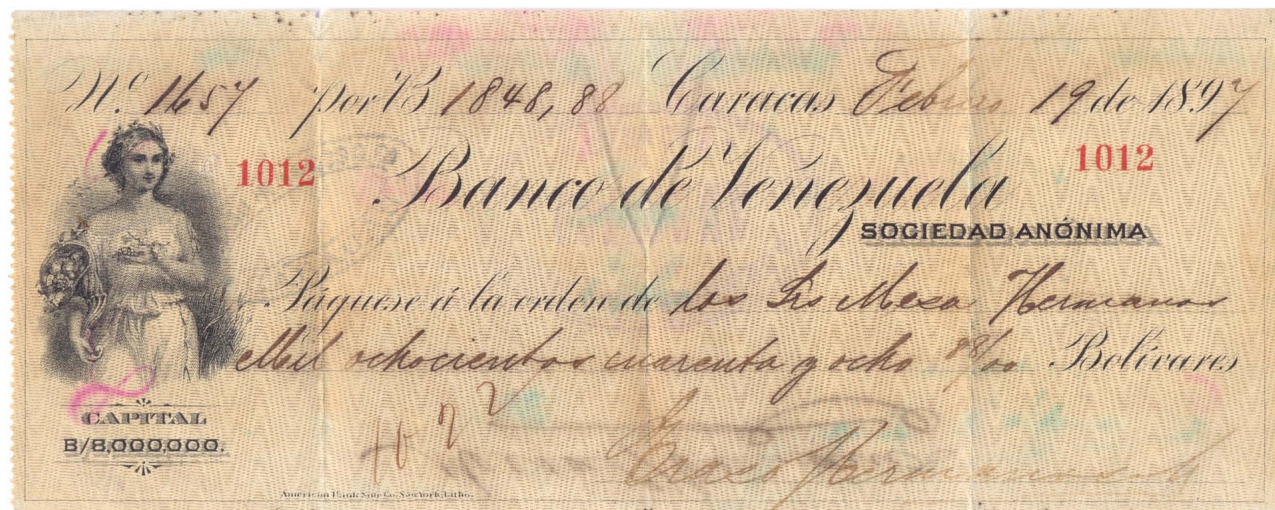 Nº 1657 por B 1848,88 Caracas Febrero 19 de 1897
1012 1012
Banco de Venezuela
SOCIEDAD ANÓNIMA
Páguese á la orden de los Srs Meza Hermanos
Mil ochocientos cuarenta y ocho 88/00 Bolívares
CAPITAL
B/8,000,000.
Hermanos
American Bank Note Co. New York, Litho.